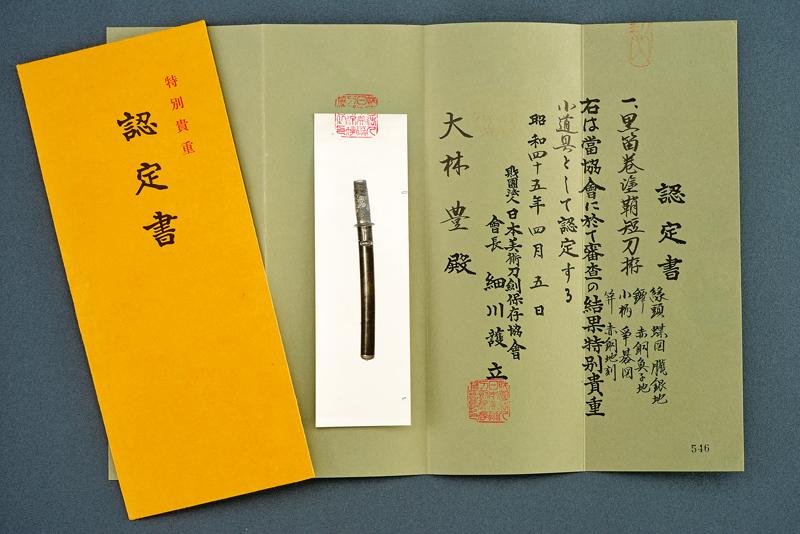 特別貴重
認定書
認定書
一、黒笛巻塗鞘短刀拵
縁頭 蝶図 朧銀地
鐔 赤銅魚子地
小柄 争碁図
笄 赤銅地刻
右は當協會に於て審査の結果特別貴重
小道具として認定する
昭和四十五年四月五日
財團法人日本美術刀劍保存協會
會長 細川護立
大林豊殿
546